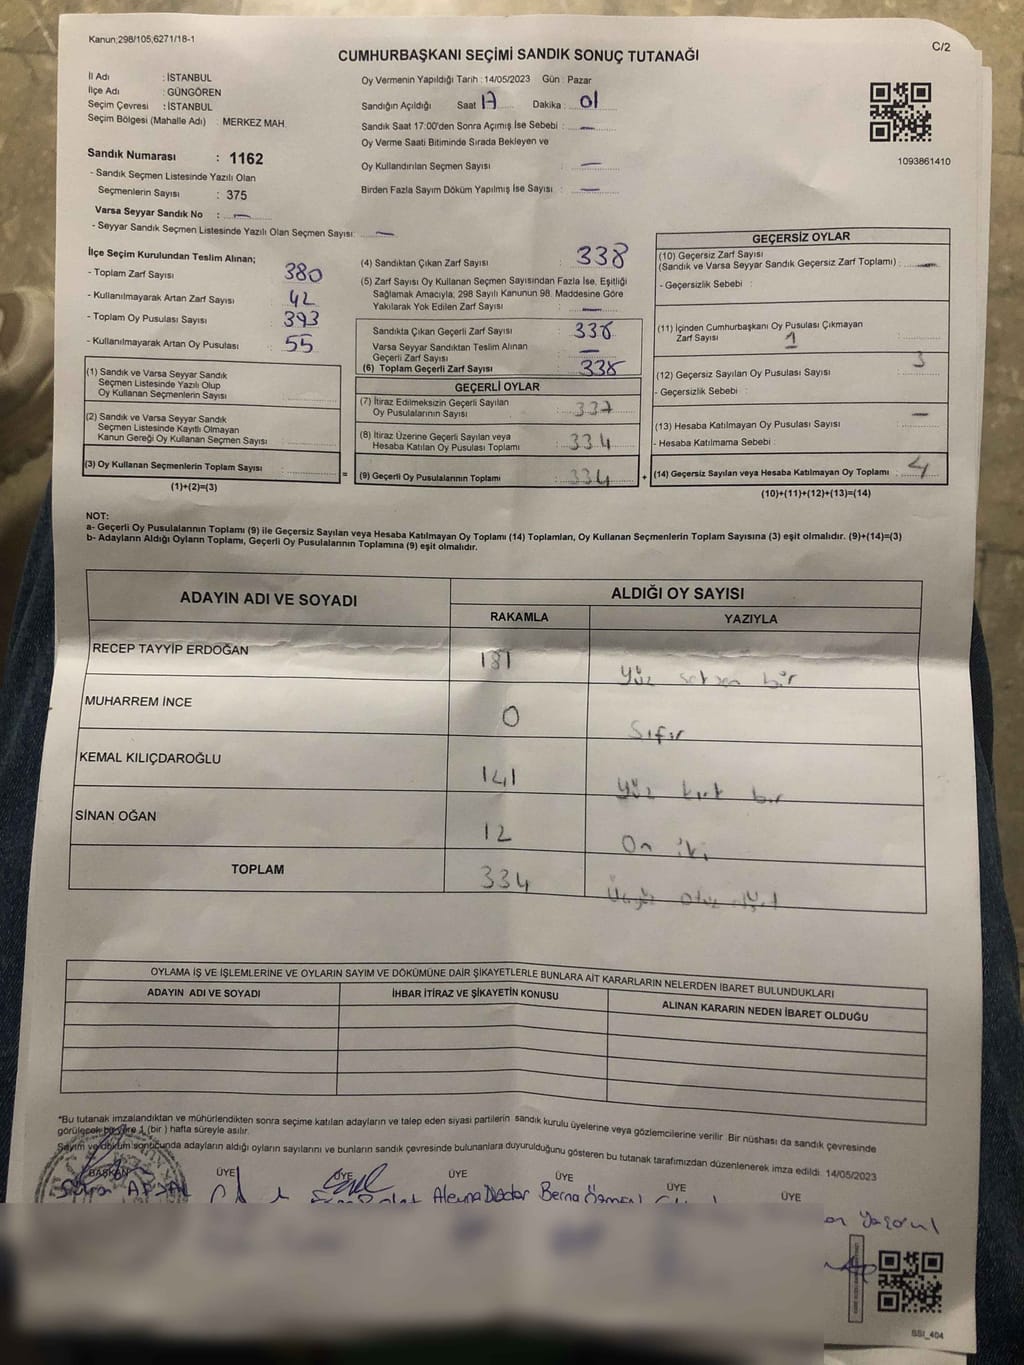 Kanun:298/105,6271/18-1
C/2
CUMHURBAŞKANI SEÇİMİ SANDIK SONUÇ TUTANAĞI
İl Adı : İSTANBUL
İlçe Adı : GÜNGÖREN
Seçim Çevresi : İSTANBUL
Seçim Bölgesi (Mahalle Adı) : MERKEZ MAH.
Sandık Numarası : 1162
- Sandık Seçmen Listesinde Yazılı Olan
Seçmenlerin Sayısı : 375
Varsa Seyyar Sandık No : —
- Seyyar Sandık Seçmen Listesinde Yazılı Olan Seçmen Sayısı: —
Oy Vermenin Yapıldığı Tarih : 14/05/2023 Gün : Pazar
Sandığın Açıldığı Saat 17 Dakika : 01
Sandık Saat 17:00'den Sonra Açımış İse Sebebi : —
Oy Verme Saati Bitiminde Sırada Bekleyen ve
Oy Kullandırılan Seçmen Sayısı : —
Birden Fazla Sayım Döküm Yapılmış İse Sayısı : —
1093861410
İlçe Seçim Kurulundan Teslim Alınan;
- Toplam Zarf Sayısı 380
- Kullanılmayarak Artan Zarf Sayısı 42
- Toplam Oy Pusulası Sayısı 393
- Kullanılmayarak Artan Oy Pusulası 55
(1) Sandık ve Varsa Seyyar Sandık
Seçmen Listesinde Yazılı Olup
Oy Kullanan Seçmenlerin Sayısı
(2) Sandık ve Varsa Seyyar Sandık
Seçmen Listesinde Kayıtlı Olmayan
Kanun Gereği Oy Kullanan Seçmen Sayısı
(3) Oy Kullanan Seçmenlerin Toplam Sayısı :
(1)+(2)=(3)
(4) Sandıktan Çıkan Zarf Sayısı : 338
(5) Zarf Sayısı Oy Kullanan Seçmen Sayısından Fazla İse, Eşitliği
Sağlamak Amacıyla, 298 Sayılı Kanunun 98. Maddesine Göre
Yakılarak Yok Edilen Zarf Sayısı : —
Sandıkta Çıkan Geçerli Zarf Sayısı : 338
Varsa Seyyar Sandıktan Teslim Alınan
Geçerli Zarf Sayısı : —
(6) Toplam Geçerli Zarf Sayısı : 338
GEÇERLİ OYLAR
(7) İtiraz Edilmeksizin Geçerli Sayılan
Oy Pusulalarının Sayısı :
(8) İtiraz Üzerine Geçerli Sayılan veya
Hesaba Katılan Oy Pusulası Toplamı : 334
(9) Geçerli Oy Pusulalarının Toplamı : 334
=
+
GEÇERSİZ OYLAR
(10) Geçersiz Zarf Sayısı
(Sandık ve Varsa Seyyar Sandık Geçersiz Zarf Toplamı) : —
- Geçersizlik Sebebi :
(11) İçinden Cumhurbaşkanı Oy Pusulası Çıkmayan
Zarf Sayısı : 1
(12) Geçersiz Sayılan Oy Pusulası Sayısı : 3
- Geçersizlik Sebebi :
(13) Hesaba Katılmayan Oy Pusulası Sayısı : —
- Hesaba Katılmama Sebebi :
(14) Geçersiz Sayılan veya Hesaba Katılmayan Oy Toplamı : 4
(10)+(11)+(12)+(13)=(14)
NOT:
a- Geçerli Oy Pusulalarının Toplamı (9) ile Geçersiz Sayılan veya Hesaba Katılmayan Oy Toplamı (14) Toplamları, Oy Kullanan Seçmenlerin Toplam Sayısına (3) eşit olmalıdır. (9)+(14)=(3)
b- Adayların Aldığı Oyların Toplamı, Geçerli Oy Pusulalarının Toplamına (9) eşit olmalıdır.
ADAYIN ADI VE SOYADI ALDIĞI OY SAYISI
RAKAMLA YAZIYLA
RECEP TAYYİP ERDOĞAN 181 Yüz seksen bir
MUHARREM İNCE 0 Sıfır
KEMAL KILIÇDAROĞLU 141 Yüz kırk bir
SİNAN OĞAN 12 On iki
TOPLAM 334 Üçyüz otuz dört
OYLAMA İŞ VE İŞLEMLERİNE VE OYLARIN SAYIM VE DÖKÜMÜNE DAİR ŞİKAYETLERLE BUNLARA AİT KARARLARIN NELERDEN İBARET BULUNDUKLARI
ADAYIN ADI VE SOYADI İHBAR İTİRAZ VE ŞİKAYETİN KONUSU ALINAN KARARIN NEDEN İBARET OLDUĞU
*Bu tutanak imzalandıktan ve mühürlendikten sonra seçime katılan adayların ve talep eden siyasi partilerin sandık kurulu üyelerine veya gözlemcilerine verilir. Bir nüshası da sandık çevresinde
görülecek bir yere 1 (bir ) hafta süreyle asılır.
Sayım ve döküm sonucunda adayların aldığı oyların sayılarını ve bunların sandık çevresinde bulunanlara duyurulduğunu gösteren bu tutanak tarafımızdan düzenlenerek imza edildi. 14/05/2023
BAŞKAN ÜYE ÜYE ÜYE ÜYE ÜYE ÜYE
Aleyna Berna
SSI_404